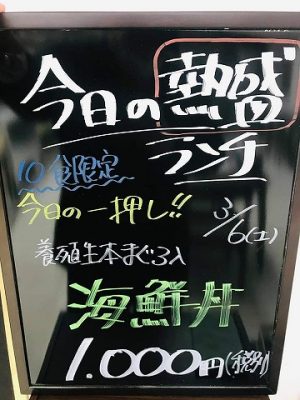 今日の熱盛
ランチ
10食限定
今日の一押し!!
3/6(土)
養殖生本まぐろ入
海鮮丼
1.000円(税別)